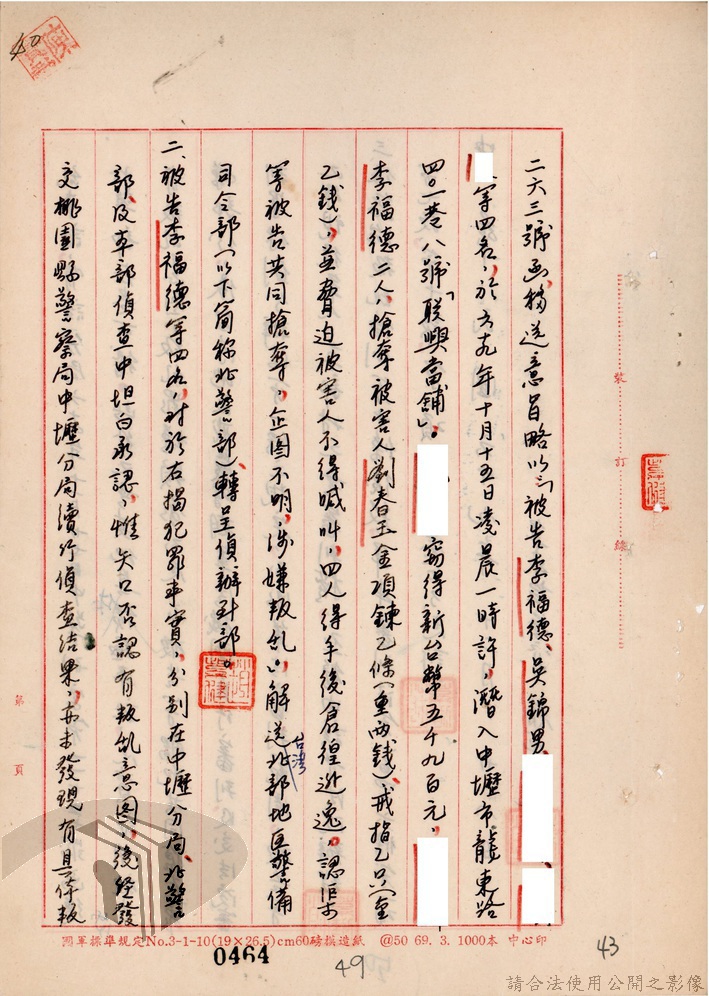 40
二六三號函,移送意旨略以:「被告李福德、吳錦男、
等四名,於六九年十月十五日凌晨一時許,潛入中壢市龍東路
四○一巷八號「联興當舖」。竊得新台幣五千九百元,
李福德二人,搶奪被害人劉春玉金項鍊乙條(重兩錢)、戒指乙只(重
乙錢),並脅迫被害人不得喊叫,四人得手後倉徨逃逸。認渠
等被告共同搶奪,企图不明,涉嫌叛乱」,解送台灣北部地区警備
司令部(以下简称北警部)轉呈偵辦到部。
二、被告李福德等四名,对於右揭犯罪事實,分别在中壢分局、北警
部、及本部偵查中坦白承認,惟矢口否認有叛乱意图,後经發
交桃園縣警察局中壢分局續行偵查結果,亦未發現有具体叛
裝
訂
線
第 頁
國軍標準規定No.3-1-10(19×26.5)cm60磅模造紙 @50 69. 3. 1000本 中心印
0464
49
43
請合法使用公開之影像